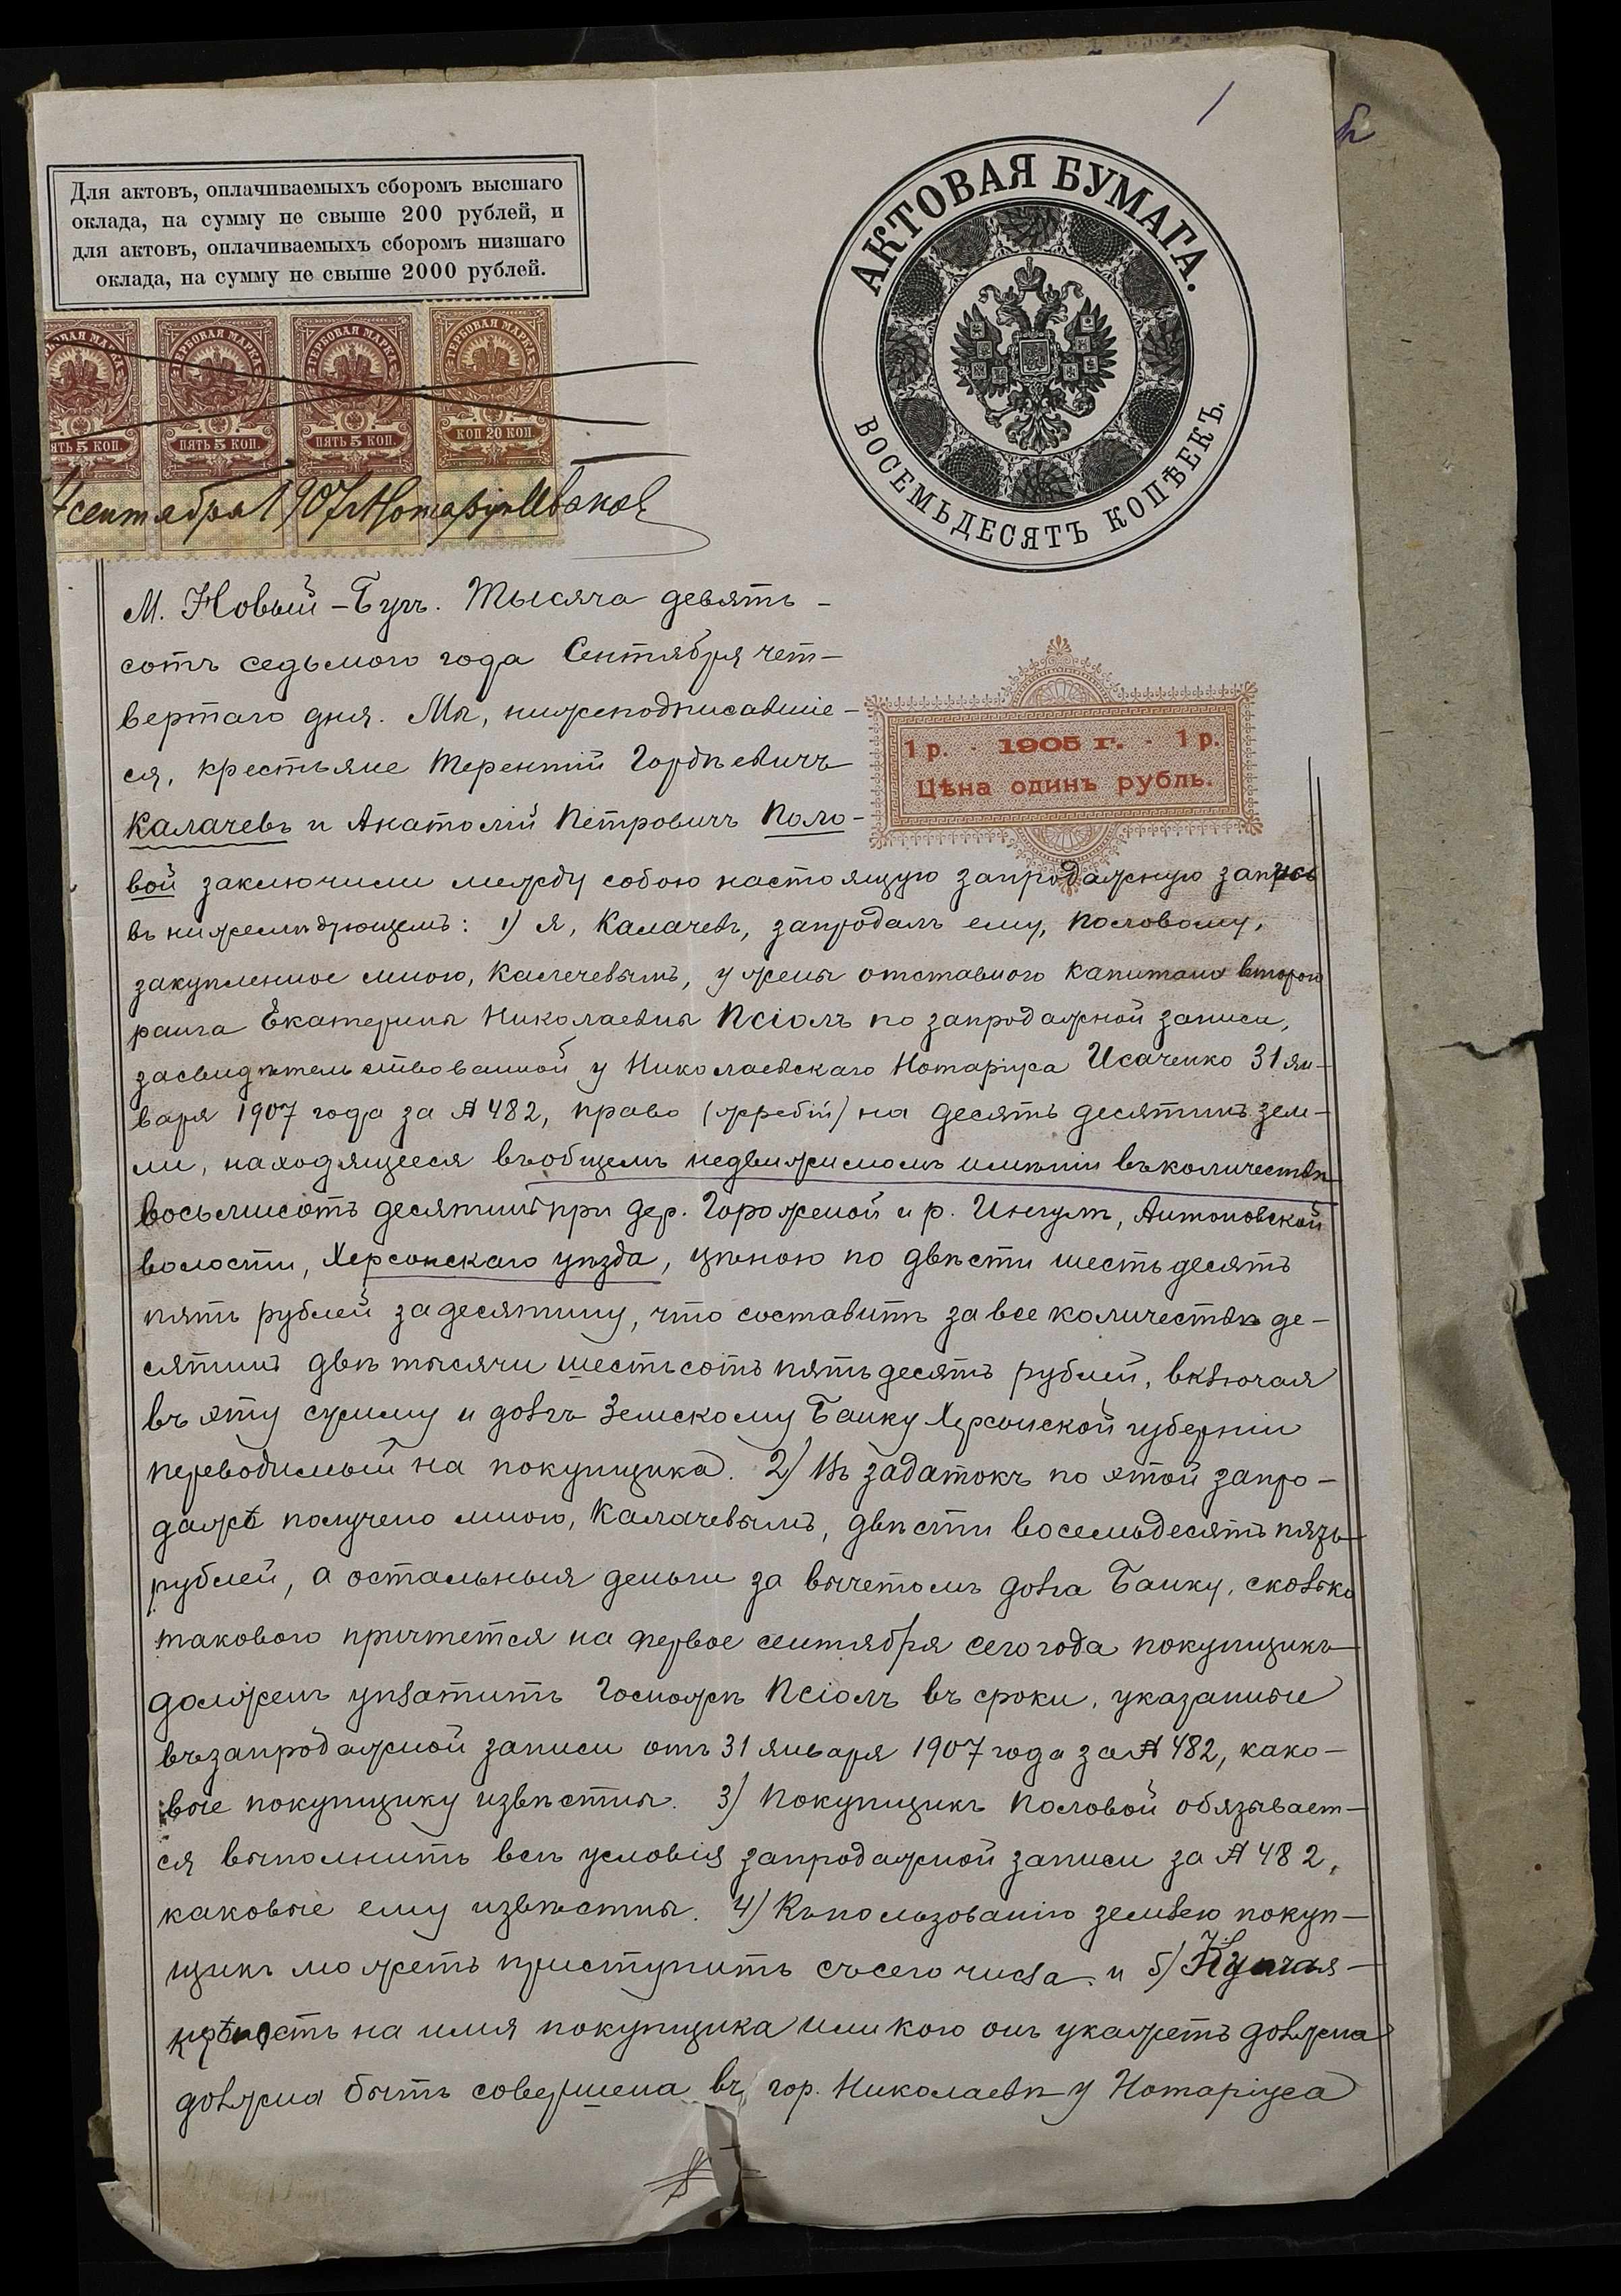 1
Для актовъ, оплачиваемыхъ сборомъ высшаго
оклада, на сумму не свыше 200 рублей, и
для актовъ, оплачиваемыхъ сборомъ низшаго
оклада, на сумму не свыше 2000 рублей.
АКТОВАЯ БУМАГА.
ВОСЕМЬДЕСЯТЪ КОПѢЕКЪ.
ГЕРБОВАЯ МАРКА ГЕРБОВАЯ МАРКА ГЕРБОВАЯ МАРКА
ПЯТЬ 5 КОП. ПЯТЬ 5 КОП. КОП 20 КОП.
4 сентября 1907 г Нотаріусъ Иванов
1 р. · 1905 г. · 1 р.
Цѣна одинъ рубль.
М. Новый-Бугъ. Тысяча девять-
сотъ седьмого года Сентября чет-
вертаго дня. Мы, нижеподписавшіе-
ся, крестьяне Терентій Гордѣевичъ
Калачевъ и Анатолій Петровичъ Поло-
вой заключили между собою настоящую запродажную запись
въ нижеслѣдующемъ: 1) Я, Калачевъ, запродалъ ему, Половому,
закупленное мною, Калачевымъ, у жены отставного капитана второго
ранга Екатерины Николаевны Псіолъ по запродажной записи,
засвидѣтельствованной у Николаевскаго Нотаріуса Исаченко 31 ян-
варя 1907 года за № 482, право (жребій) на десять десятинъ зем-
ли, находящееся въ общемъ недвижимомъ имѣніи въ количествѣ
восьмисотъ десятинъ при дер. Гороженой и р. Ингулѣ, Антоновской
волости, Херсонскаго уѣзда, цѣною по двѣсти шестьдесятъ
пять рублей за десятину, что составитъ за все количествѣ де-
сятинъ двѣ тысячи шестьсотъ пятьдесятъ рублей, включая
въ эту сумму и долгъ Земскому Банку Херсонской губерніи
переводимый на покупщика. 2) Въ задатокъ по этой запро-
дажѣ получено мною, Калачевымъ, двѣсти восемьдесятъ пять
рублей, а остальныя деньги за вычетомъ долга Банку, сколько
такового причтется на первое сентября сего года покупщикъ
долженъ уплатить Госпожѣ Псіолъ въ сроки, указанные
въ запродажной записи отъ 31 января 1907 года за № 482, како-
вые покупщику извѣстны. 3) Покупщикъ Половой обязывает-
ся выполнить всѣ условія запродажной записи за № 482,
каковые ему извѣстны. 4) Къ пользованію землею покуп-
щикъ можетъ приступить съ сего числа. и 5) Купчая
крѣпость на имя покупщика или кого онъ укажетъ должна
должна быть совершена въ гор. Николаевѣ у Нотаріуса